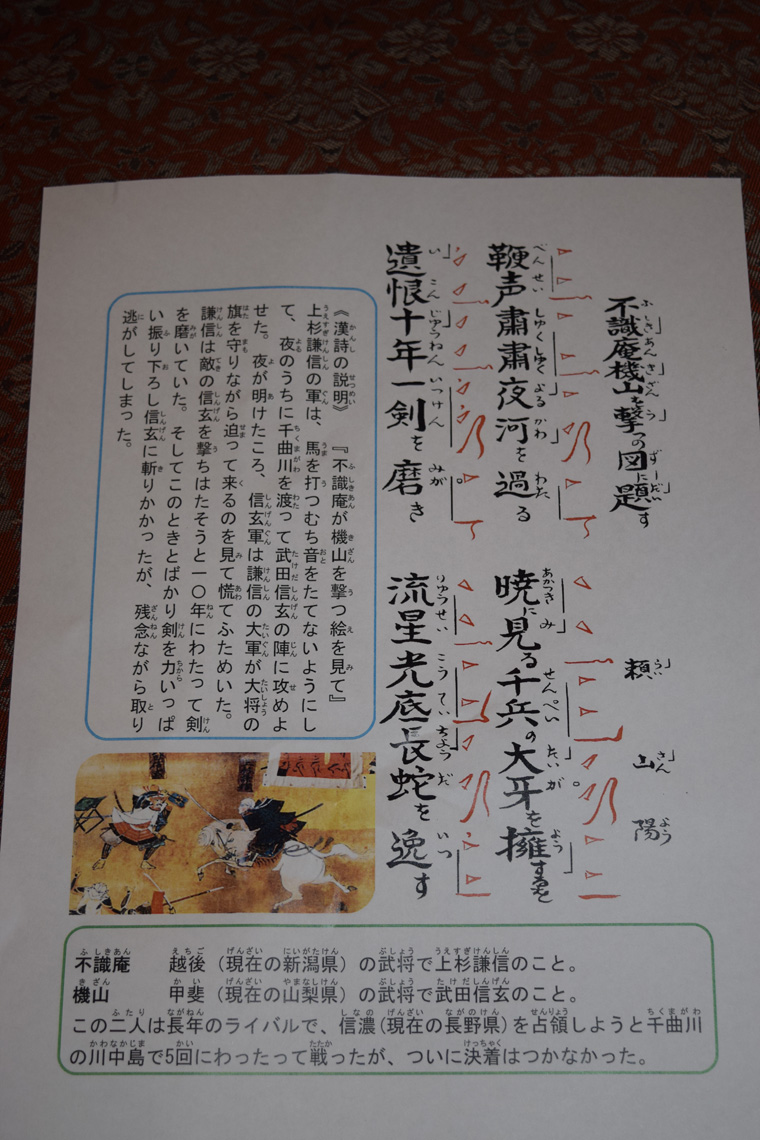 不識庵機山を撃の図に題す
頼 山 陽
鞭声粛粛夜河を過る
暁に見る千兵の大牙を擁するを
遺恨十年一剣を磨き
流星光底長蛇を逸す
《漢詩の説明》 『不識庵が機山を撃つ絵を見て』
上杉謙信の軍は、馬を打つむち音をたてないようにし
て、夜のうちに千曲川を渡って武田信玄の陣に攻めよ
せた。夜が明けたころ、信玄軍は謙信の大軍が大将の
旗を守りながら迫って来るのを見て慌てふためいた。
謙信は敵の信玄を撃ちはたそうと一〇年にわたって剣
を磨いていた。そしてこのときとばかり剣を力いっぱ
い振り下ろし信玄に斬りかかったが、残念ながら取り
逃がしてしまった。
不識庵 越後（現在の新潟県）の武将で上杉謙信のこと。
機山 甲斐（現在の山梨県）の武将で武田信玄のこと。
この二人は長年のライバルで、信濃(現在の長野県）を占領しようと千曲川
の川中島で5回にわったって戦ったが、ついに決着はつかなかった。